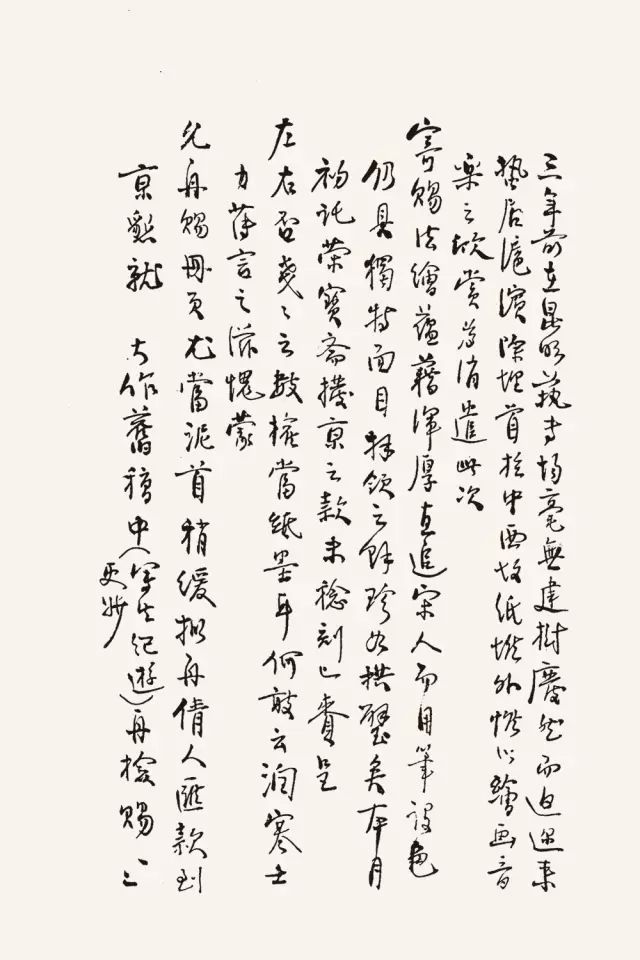 三年前在昆明藝專場毫無建樹廢然而迫邇来
蟄居滬濱除埋首於中西故紙堆外惟以繪画音
樂之欣賞为消遣此次
寄賜法繪蘊藉渾厚直追宋人而用筆設色
仍具獨特面目拜領之餘珍如拱璧矣本月
初託荣寶斎撥京之款未稔刻已賷呈
左右否戔戔之数權當紙墨耳何敢云潤寒士
力薄言之滋愧蒙
允再賜冊頁尤當泥首稍緩拟再倩人匯款到
京懇就 大作舊稿中(寫生紀遊)再檢賜一二
更妙